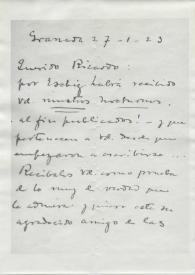 Granada 27-1-23
Querido Ricardo:
por Eschig habrá recibido
Vd. nuestros Nocturnos.
al fin publicados! — y que
pertenecen a Vd. desde que
empezaron a escribirse...
Recíbalos Vd. como prueba
de lo muy de verdad que
le admira y quiere este su
agradecido amigo de las